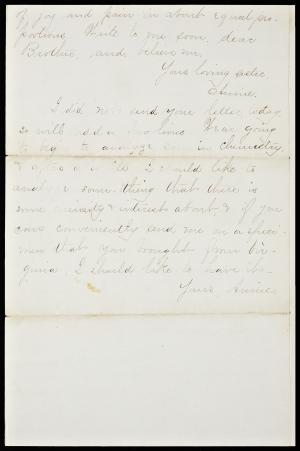 of joy and pain in about equal pro-
portions. Write to me soon, dear
Brother, and believe me,
Your loving sister,
Annie.
I did not send your letter today,
so will add a few lines. We are going
to begin to analyze soon in Chemistry,
& after a while I should like to
analyze some-thing that there is
some curiosity & interest about & if you
can conveniently send me a speci-
men that you brought from Vir-
ginia, I should like to have it.
Yours Annie.